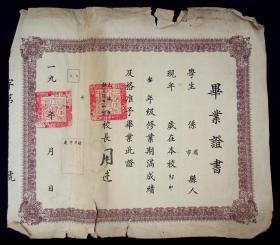 畢業證書
學生 係 省 縣人
市
現年 歲在本校初中
年級修業期滿成績
及格准予畢業此證
校長周述
一九 年 月 日
字第 號